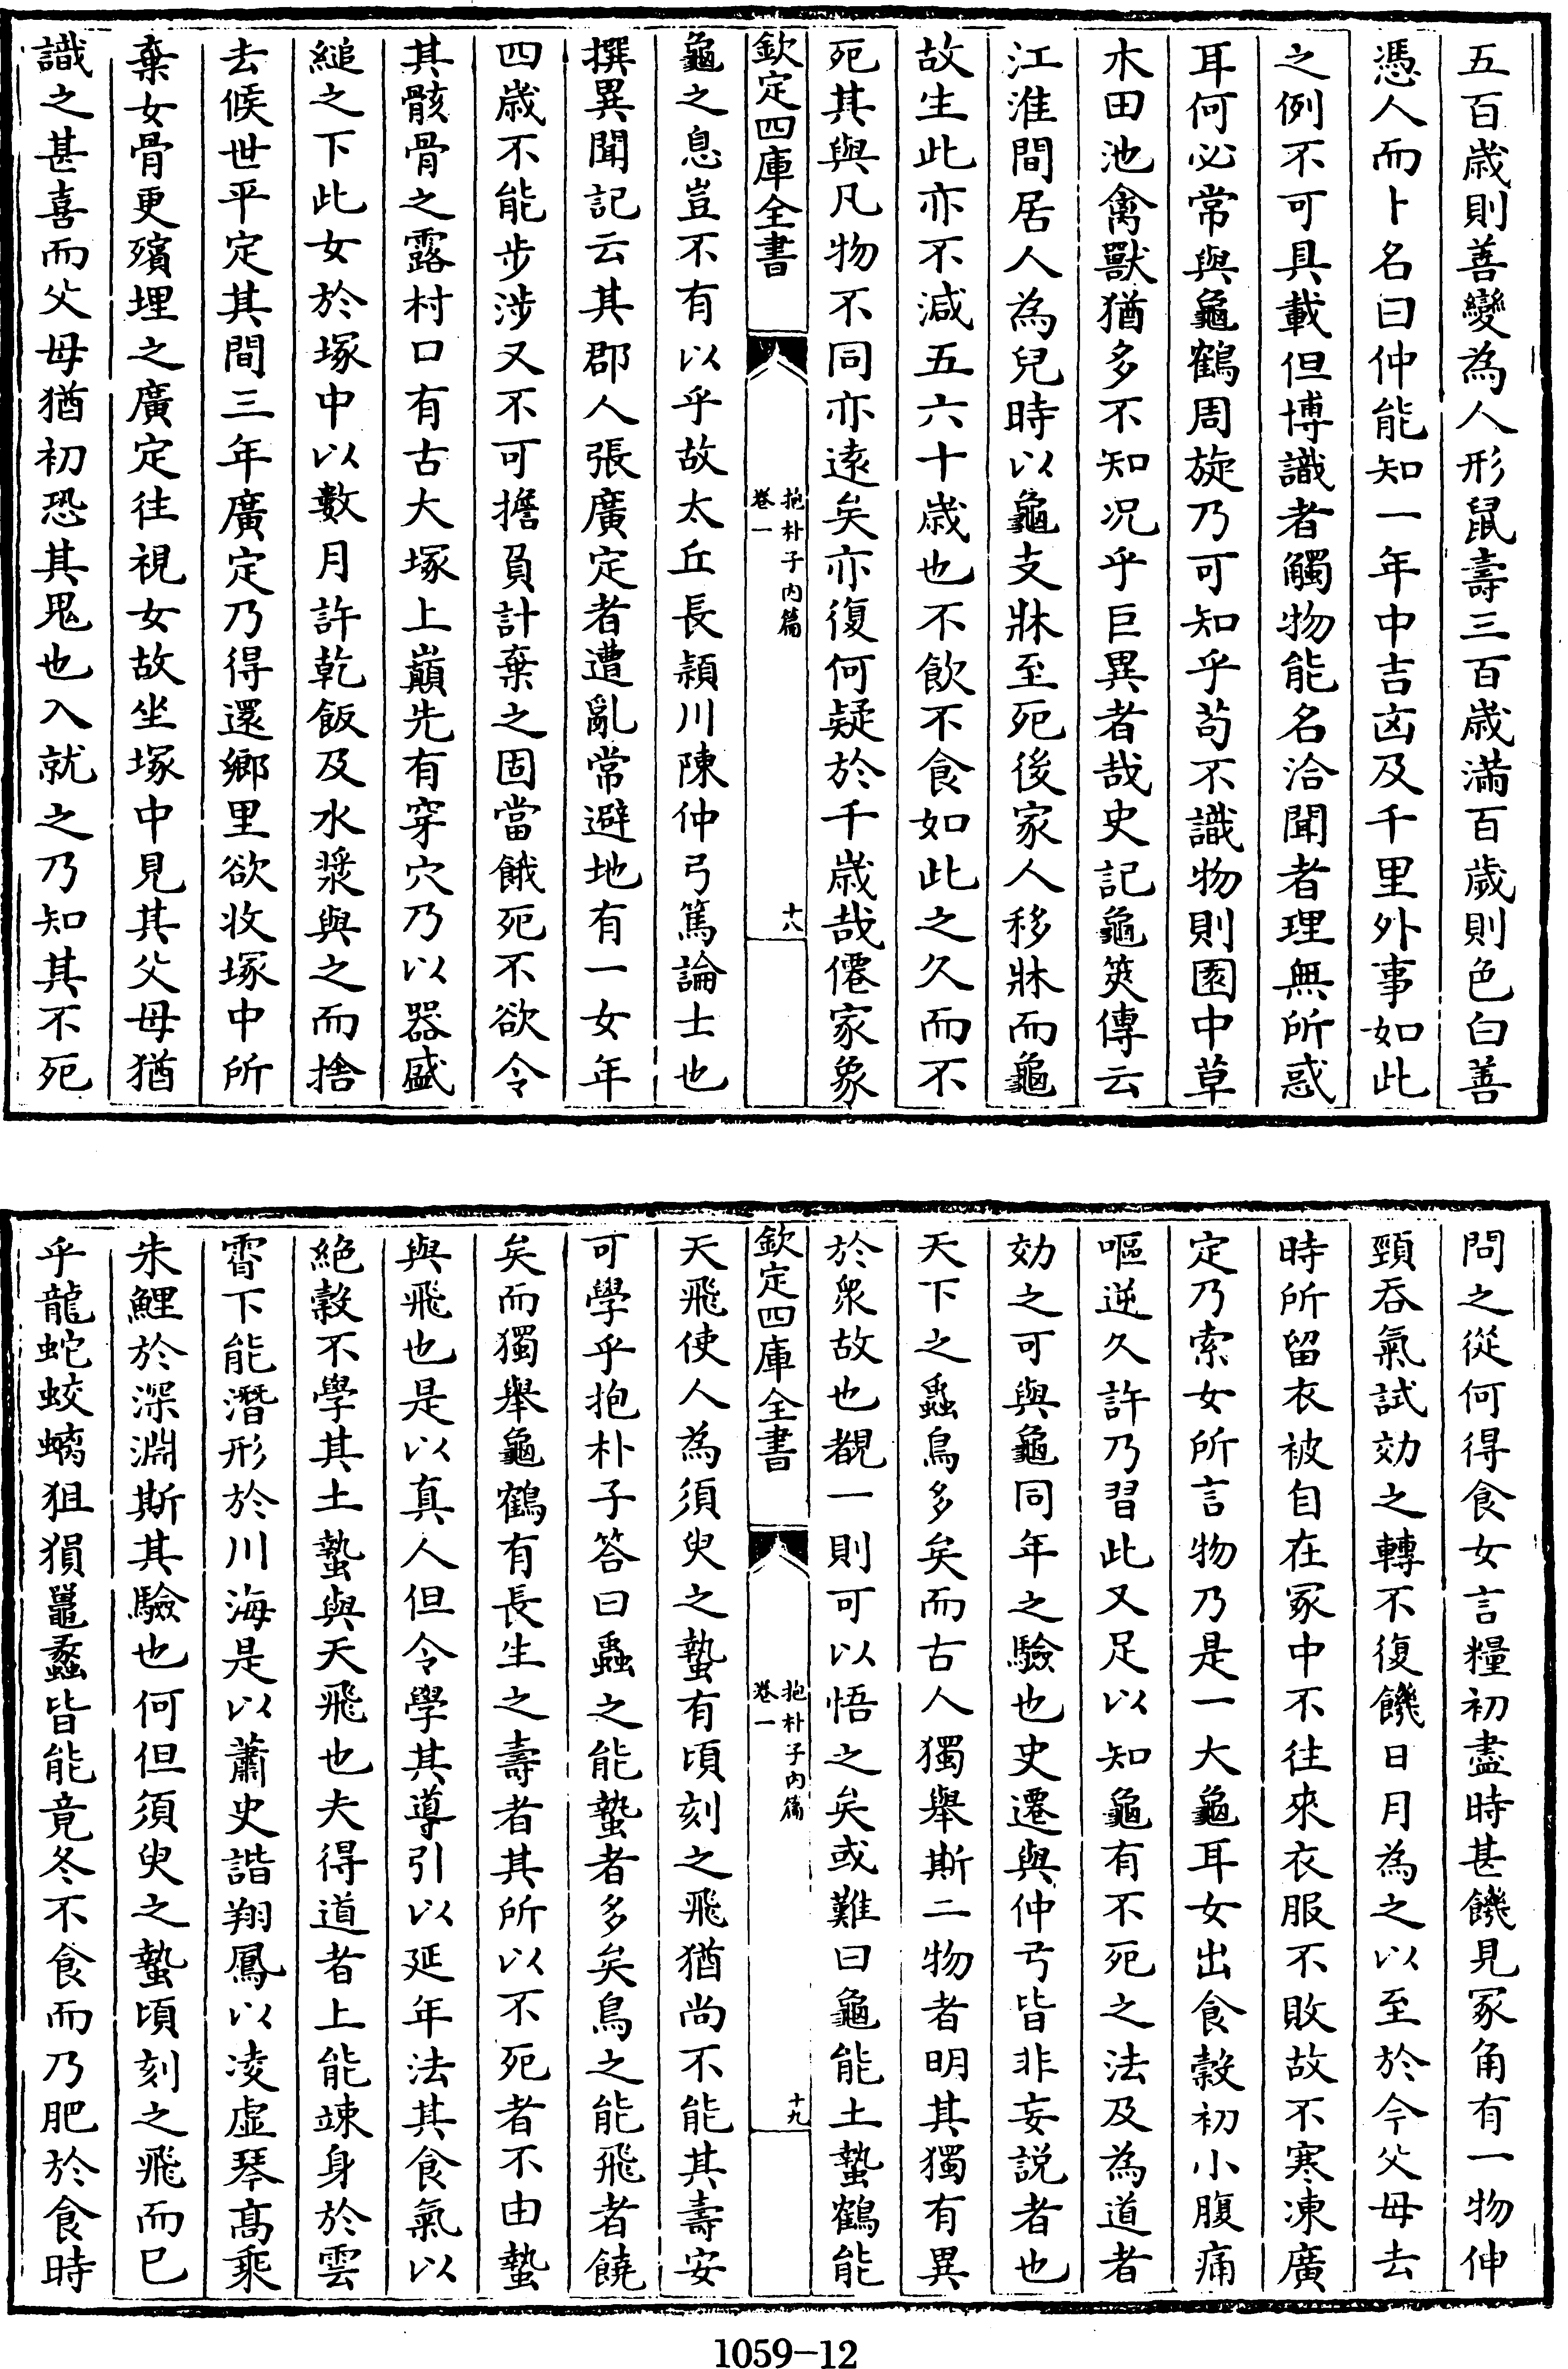 五百歳則善變為人形鼠壽三百歳滿百歲則色白善
憑人而卜名曰仲能知一年中吉凶及千里外事如此
之例不可具載但博識者觸物能名洽聞者理無所惑
耳何必常與龜鶴周旋乃可知乎苟不識物則園中草
木田池禽獸猶多不知况乎巨異者哉史記龜筴傳云
江淮間居人為兒時以龜支牀至死後家人移牀而龜
故生此亦不減五六十歳也不飲不食如此之久而不
死其與凡物不同亦逺矣亦復何疑於千歳哉僊家象
欽定四庫全書
抱朴子内篇
卷一
十八
龜之息豈不有以乎故太丘長潁川陳仲弓篤論士也
撰異聞記云其郡人張廣定者遭亂常避地有一女年
四歳不能步涉又不可擔負計棄之固當餓死不欲令
其骸骨之露村口有古大塚上巔先有穿穴乃以器盛
縋之下此女於塚中以數月許乾飯及水漿與之而捨
去候世平定其間三年廣定乃得還鄉里欲收塚中所
棄女骨更殯埋之廣定往視女故坐塚中見其父母猶
識之甚喜而父母猶初恐其鬼也入就之乃知其不死
問之從何得食女言糧初盡時甚饑見冢角有一物伸
頸吞氣試効之轉不復饑日月為之以至於今父母去
時所留衣被自在冢中不往來衣服不敗故不寒凍廣
定乃索女所言物乃是一大龜耳女出食穀初小腹痛
嘔逆久許乃習此又足以知龜有不死之法及為道者
効之可與龜同年之驗也史遷與仲弓皆非妄説者也
天下之蟲鳥多矣而古人獨舉斯二物者明其獨有異
於衆故也覩一則可以悟之矣或難曰龜能土蟄鶴能
欽定四庫全書
抱朴子内篇
卷一
十九
天飛使人為須臾之蟄有頃刻之飛猶尚不能其壽安
可學乎抱朴子答曰蟲之能蟄者多矣鳥之能飛者饒
矣而獨舉龜鶴有長生之壽者其所以不死者不由蟄
與飛也是以真人但令學其導引以延年法其食氣以
絶穀不學其土蟄與天飛也夫得道者上能竦身於雲
霄下能潛形於川海是以蕭史諧翔鳳以凌虛琴高乘
朱鯉於深淵斯其驗也何但須臾之蟄頃刻之飛而已
乎龍蛇蛟螭狙猬鼉蠡皆能竟冬不食而乃肥於食時
1059-12